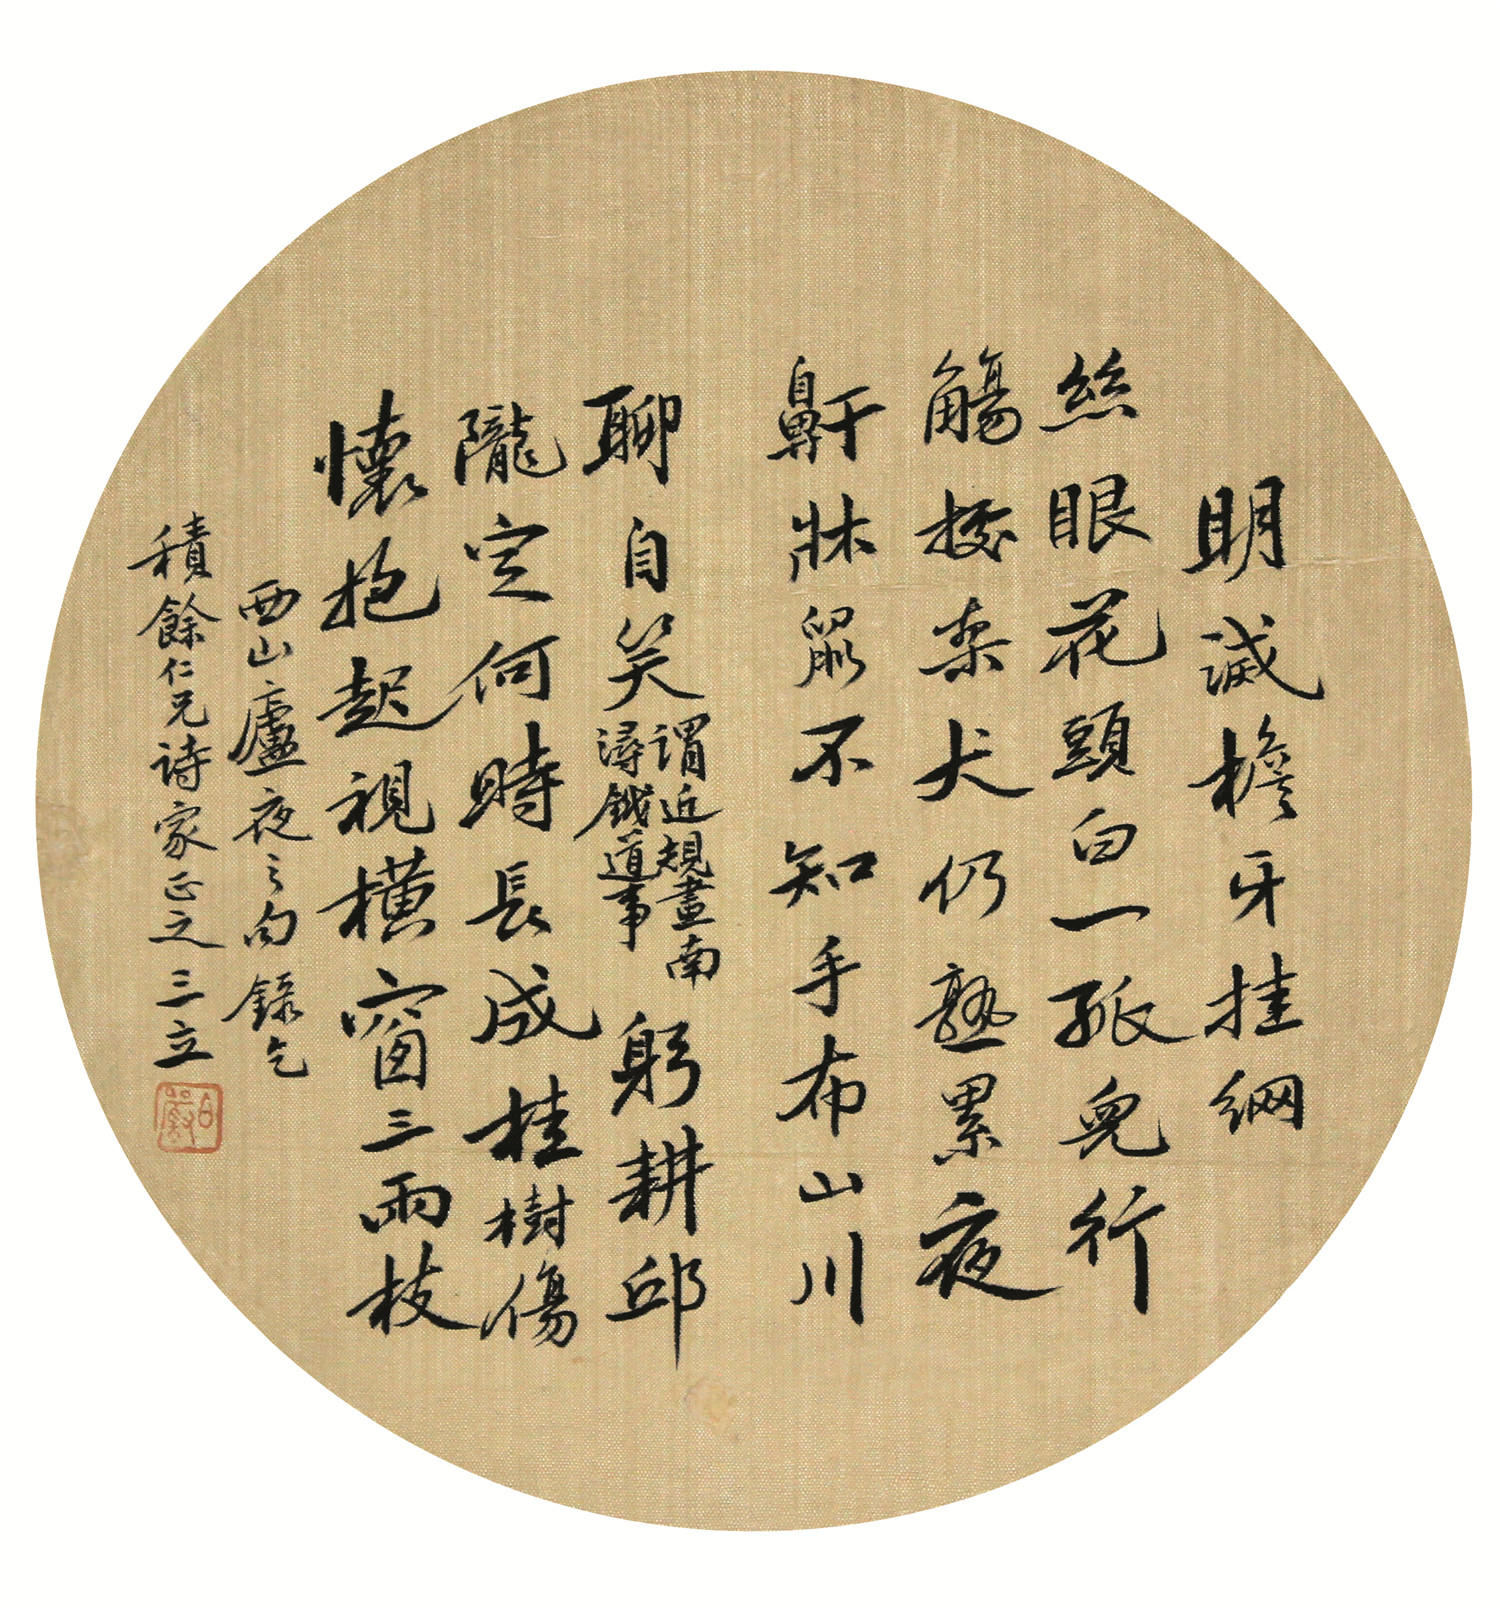 明滅檐牙挂網
絲眼花頭白一孤兒行
觴挼柰犬仍熟累夜
鼾牀鼠不知手布山川
聊自笑
謂近規畫南
潯鐵道事
躬耕邱
隴定何時長成桂樹傷
懷抱起視橫窗三兩枝
西山廬夜之句錄乞
積餘仁兄詩家正之三立
伯嚴